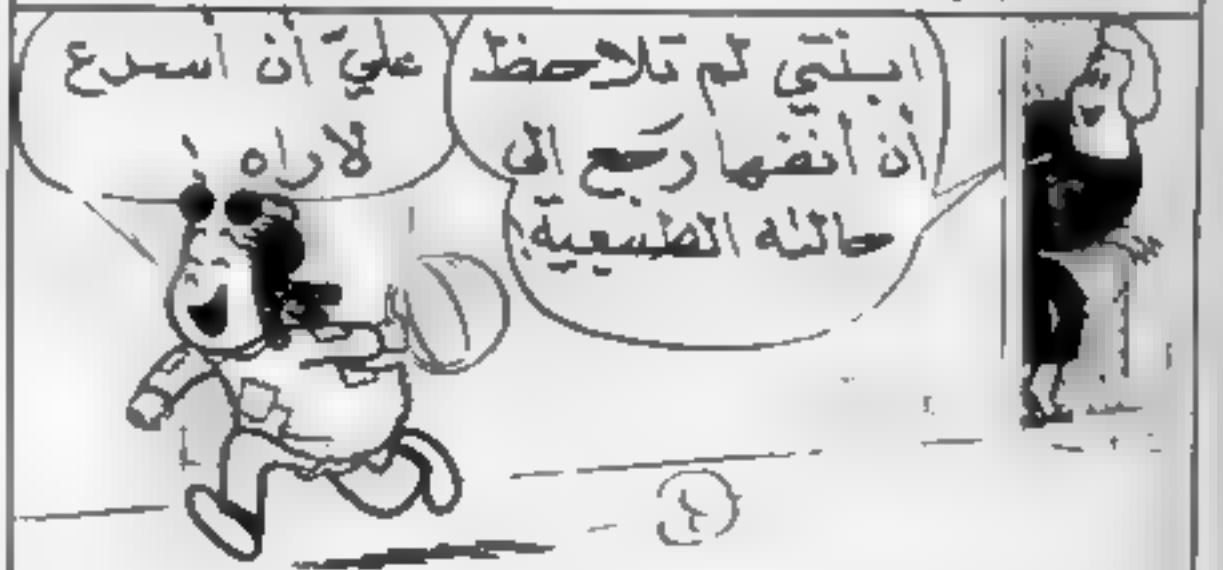 ابنتي لم تلاحظ
أن أنفها رجع الى
حالته الطبيعية
عليّ أن أسرع
لاراه